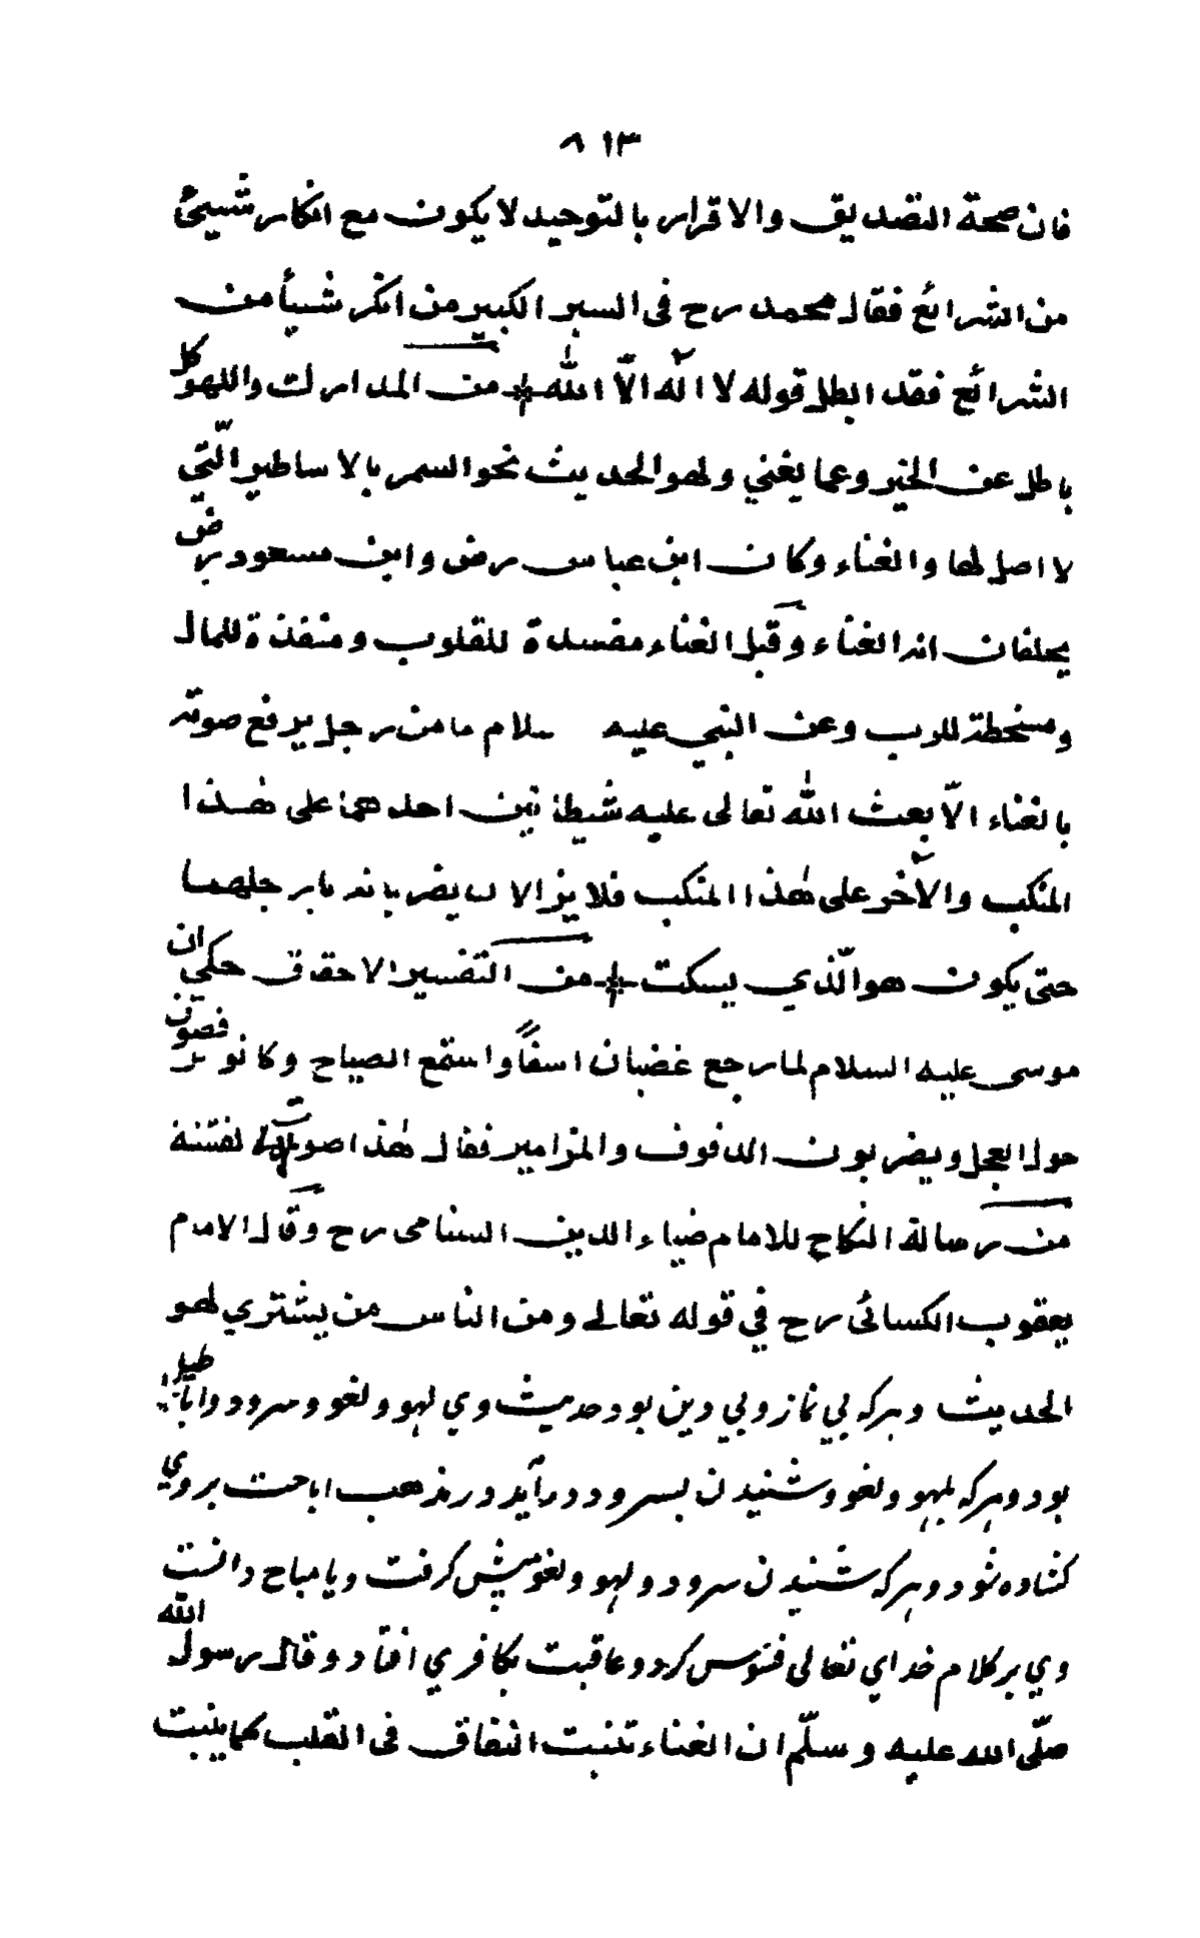 ٨١٣
فان صحة التصديق والاقرار بالتوحيد لا يكون مع انكار شيئ
من الشرائع فقال محمد رح فى السير الكبير من انكر شيأ من
الشرائع فقد ابطل قوله لا اله الّا الله * من المدارك واللهو كل
باطل عن الخير وعما يغني ولهو الحديث نحو السمر بالاساطير الّتي
لا اصل لها والغناء وكان ابن عباس رض وابن مسعود رض
يحلفان انه الغناء وقيل الغناء مفسدة للقلوب ومنفذة للمال
ومسخطة للرب وعن النبي عليه سلام ما من رجل يرفع صوته
بالغناء الّا بعث الله تعالى عليه شيطانين احدهما على هذا
المنكب والآخر على هذا المنكب فلا يزالان يضربانه بارجلهما
حتى يكون هو الّذي يسكت * من التفسير الاحقاق حكي ان
موسى عليه السلام لما رجع غضبان اسفاً واستمع الصياح وكانو يرقصون
حول العجل ويضربون الدفوف والمزامير فقال هذا صوت لفتنة
من رسالة النكاح للامام ضياء الدين السنامى رح وقال الامام
يعقوب الكسائى رح في قوله تعالى ومن الناس من يشتري لهو
الحديث وهركه بي نماز وبي دين بود حديث وي لهو ولغو وسرود واباطيل
بود وهركه بلهو ولغو وشنيدن بسرود درآيد در مذهب اباحت بروي
كشاده شود وهركه شنيدن سرود ولهو ولغو پيش كرفت ويا مباح دانست
وي بر كلام خداي تعالى فسوس كرد وعاقبت بكافري افتاد وقال رسول الله
صلّى الله عليه وسلّم ان الغناء تنبت النفاق فى القلب كما ينبت